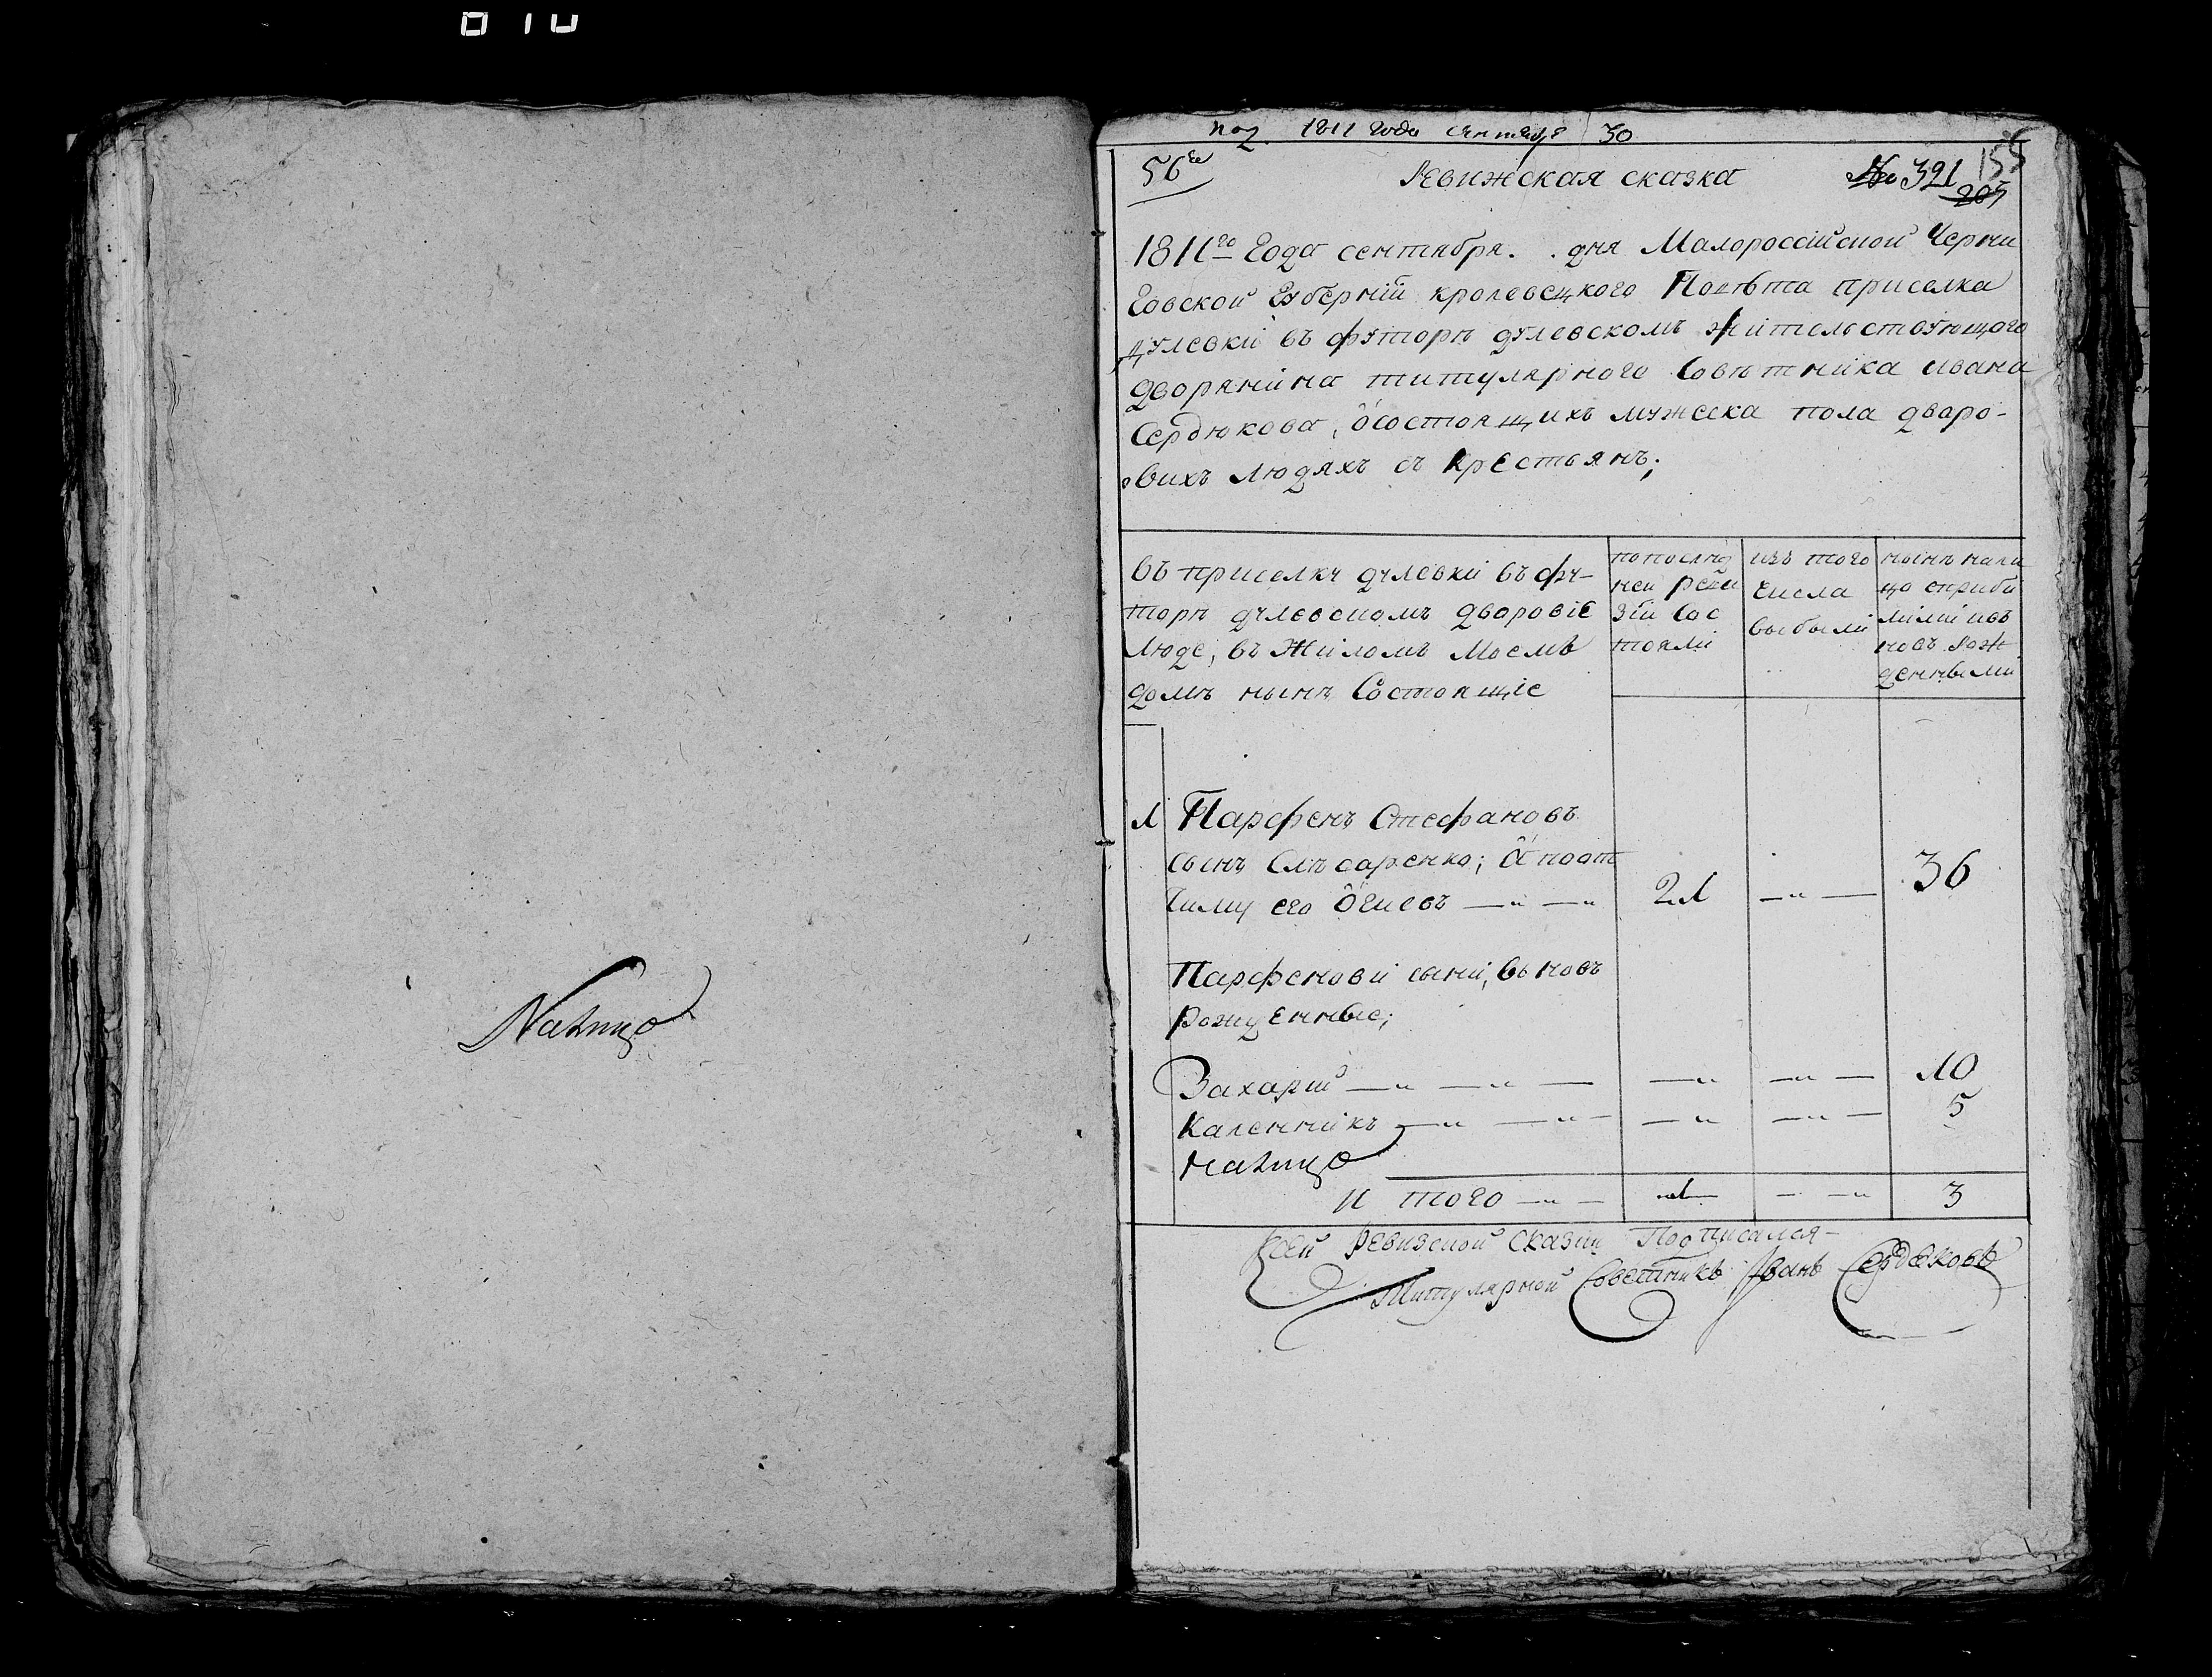 010
Налицо
1811 года сентября 30
56е
Ревижская сказка № 321 155
205
1811го Года сентября . . дня Малороссійской Черни
Говской Губерніи кролевецкого Повѣта приселка
дулевки въ футорѣ дулевскомъ жительствующого
дворянина титулярного Совѣтника ивана
Сердюкова, о состоящихъ мужеска пола дваро-
вихъ людяхъ съ крестьянъ;
въ приселку дулевки въ фу-
торѣ дулевскомъ дворовіе
люде, въ Жиломъ Моемъ
домѣ нынѣ Состоящіе
по послед
ней реви
зіи сос
тояли
изъ того
числа
выбыли
нынѣ нали
цо спрыбы
лими и въ
новъ рож
денными
1 Парфенъ Стефановъ
сынъ Слѣсаренко; а по от
чиму его Огиевъ — " — " 21 — " — 36
Парфенови сыни, вь новъ
рожденные;
Захарий — " — " — — " — " — 10
Каленникъ — " — " — — " — " — 5
налицо
И того — " — 1 — — " 3
К сей Ревизской сказки Подписался
Титулярной Советникъ Іванъ Сердюковъ